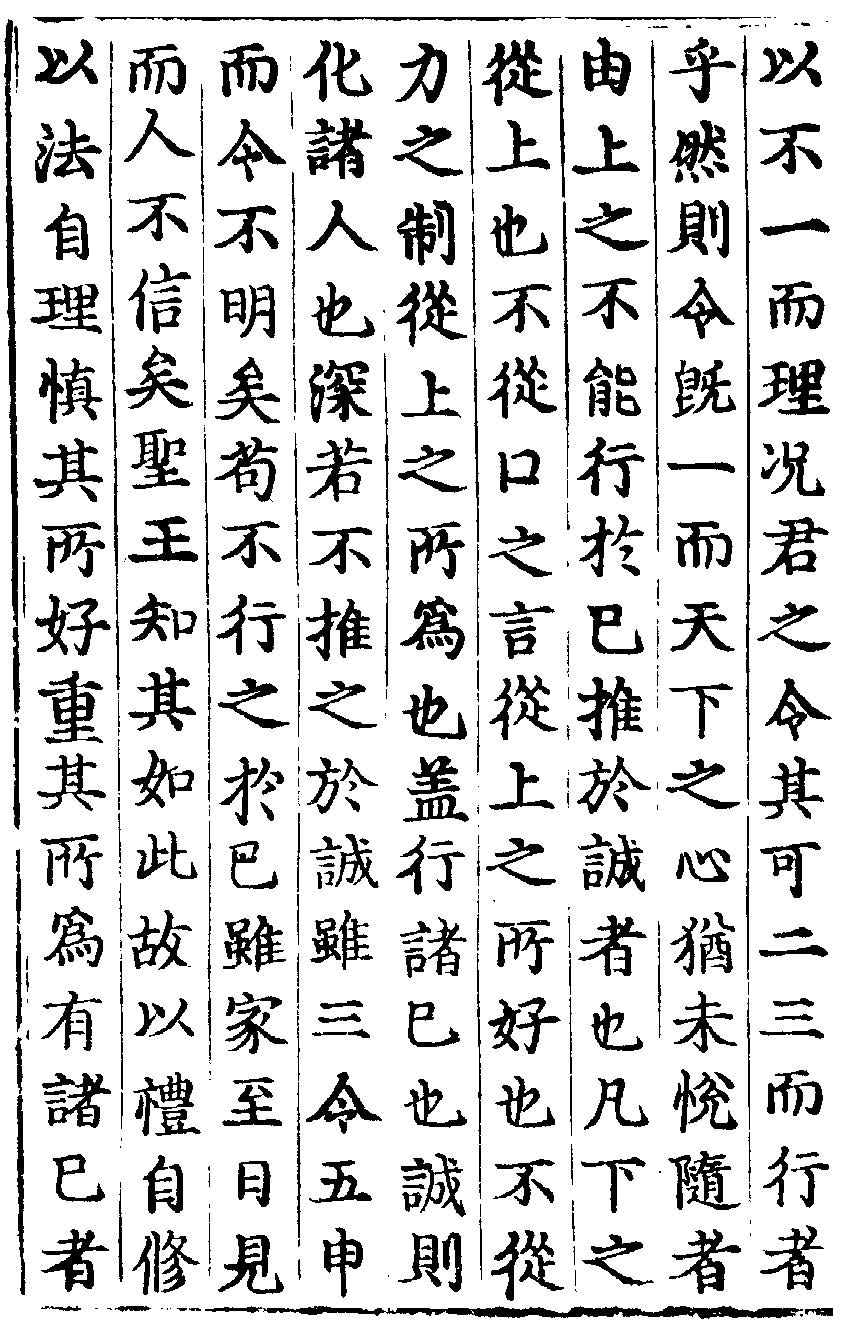 以不一而理况君之令其可二三而行者
乎然則令旣一而天下之心猶未悅隨者
由上之不能行於已推於誠者也凡下之
從上也不從口之言從上之所好也不從
力之制從上之所爲也盖行諸已也誠則
化諸人也深若不推之於誠雖三令五申
而令不明矣苟不行之於已雖家至日見
而人不信矣聖王知其如此故以禮自修
以法自理慎其所好重其所爲有諸已者